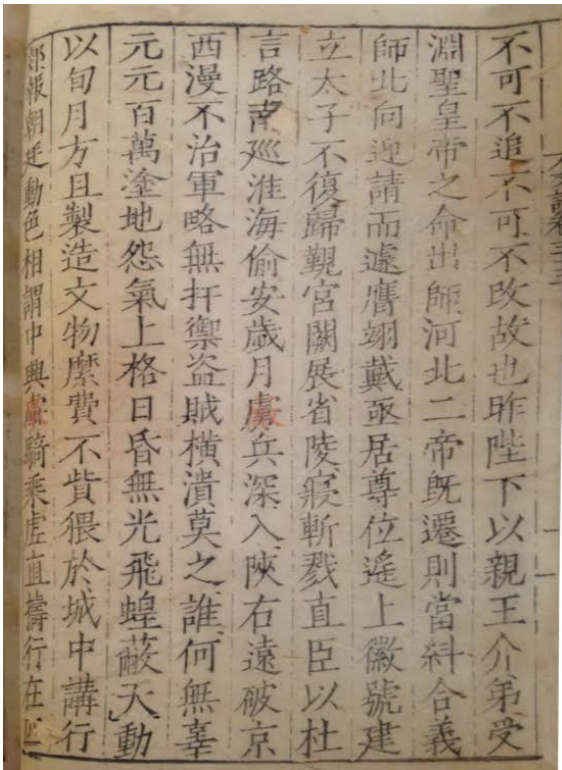 不可不追不可不改故也昨陛下以親王介弟受
淵聖皇帝之命出師河北二帝既遷則當糾合義
師北向迎請而遽膺翊戴亟居尊位遙上徽號建
立太子不復歸覲宮闕展省陵寢斬戮直臣以杜
言路南廵淮海偷安歲月虜兵深入陝右遠破京
西漫不治軍略無扞禦盗賊橫潰莫之誰何無辜
元元百萬塗地怨氣上格日昏無光飛蝗蔽天動
以旬月方且製造文物縻費不貲猥於城中講行
郊報朝廷動色相謂中興虜騎乘虛直擣行在